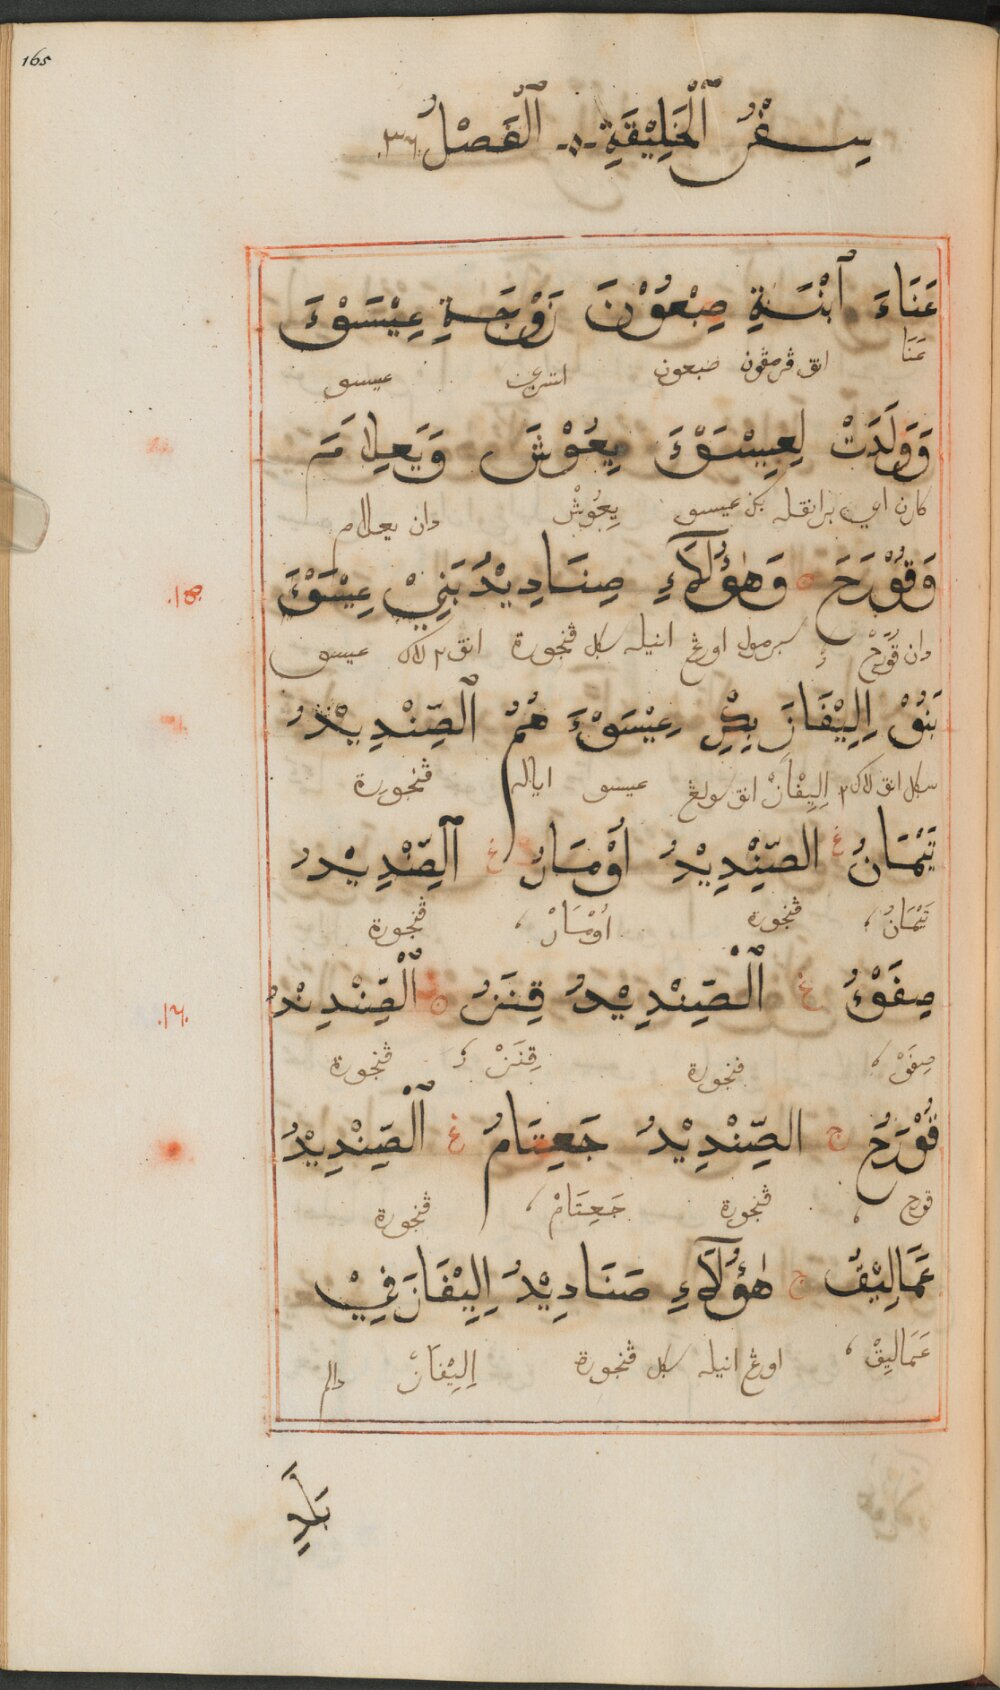 165
سِفْرُ ٱلْخَلِيْقَةِ ٱلْفَصْلُ ٣٦
عَنَاءَ ٱبْنَةِ صِبْعُوْنَ زَوْجَةِ عِيْسَوْءَ
عَنَا انق ڤرمڤون صبعون استري عيسو
وَوَلَدَتْ لِعِيْسَوْءَ يِعُوْشَ وَيَعِلَامَ
كارن اي برانقله بكن عيسو يِعُوْش دان يعلام
وَقُوْرَحَ وَهٰؤُلَاءِ صِنَادِيْدُ بَنِيْ عِيْسَوْءَ
١٥
دان قُوْرَحْ سبرمول اورڠ انيله سكل ڤنجورة انق٢ لاك عيسو
بَنُوْ اِلِيْفَازَ بِكْرِ عِيْسَوْءَ هُمُ ٱلصِّنْدِيْدُ
سكل انق لاك٢ اِلِيْفَازْ انق سولڠ عيسو اياله ڤنجورة
تَيْمَانُ الصِّنْدِيْدُ أُوْمَارُ ٱلصِّنْدِيْدُ
تَيْمَانُ، ڤنجورة أُوْمَارْ، ڤنجورة
صِفَوْءُ ٱلْصِّنْدِيْدُ قِنَزُ ٱلْصِّنْدِيْدُ
١٦
صِفَوْ، ڤنجورة قِنَزْ، ڤنجورة
قُوْرَحُ الصِّنْدِيْدُ جَعِتَامُ ٱلْصِّنْدِيْدُ
قورح، ڤنجورة جَعِتَامْ، ڤنجورة
عَمَالِيْقُ هٰؤُلَاءِ صَنَادِيْدُ اِلِيْفَازَ فِيْ
عَمَالِيْقْ، اورڠ انيله سكل ڤنجورة اِلِيْفَازْ دالم
بَلَدِ